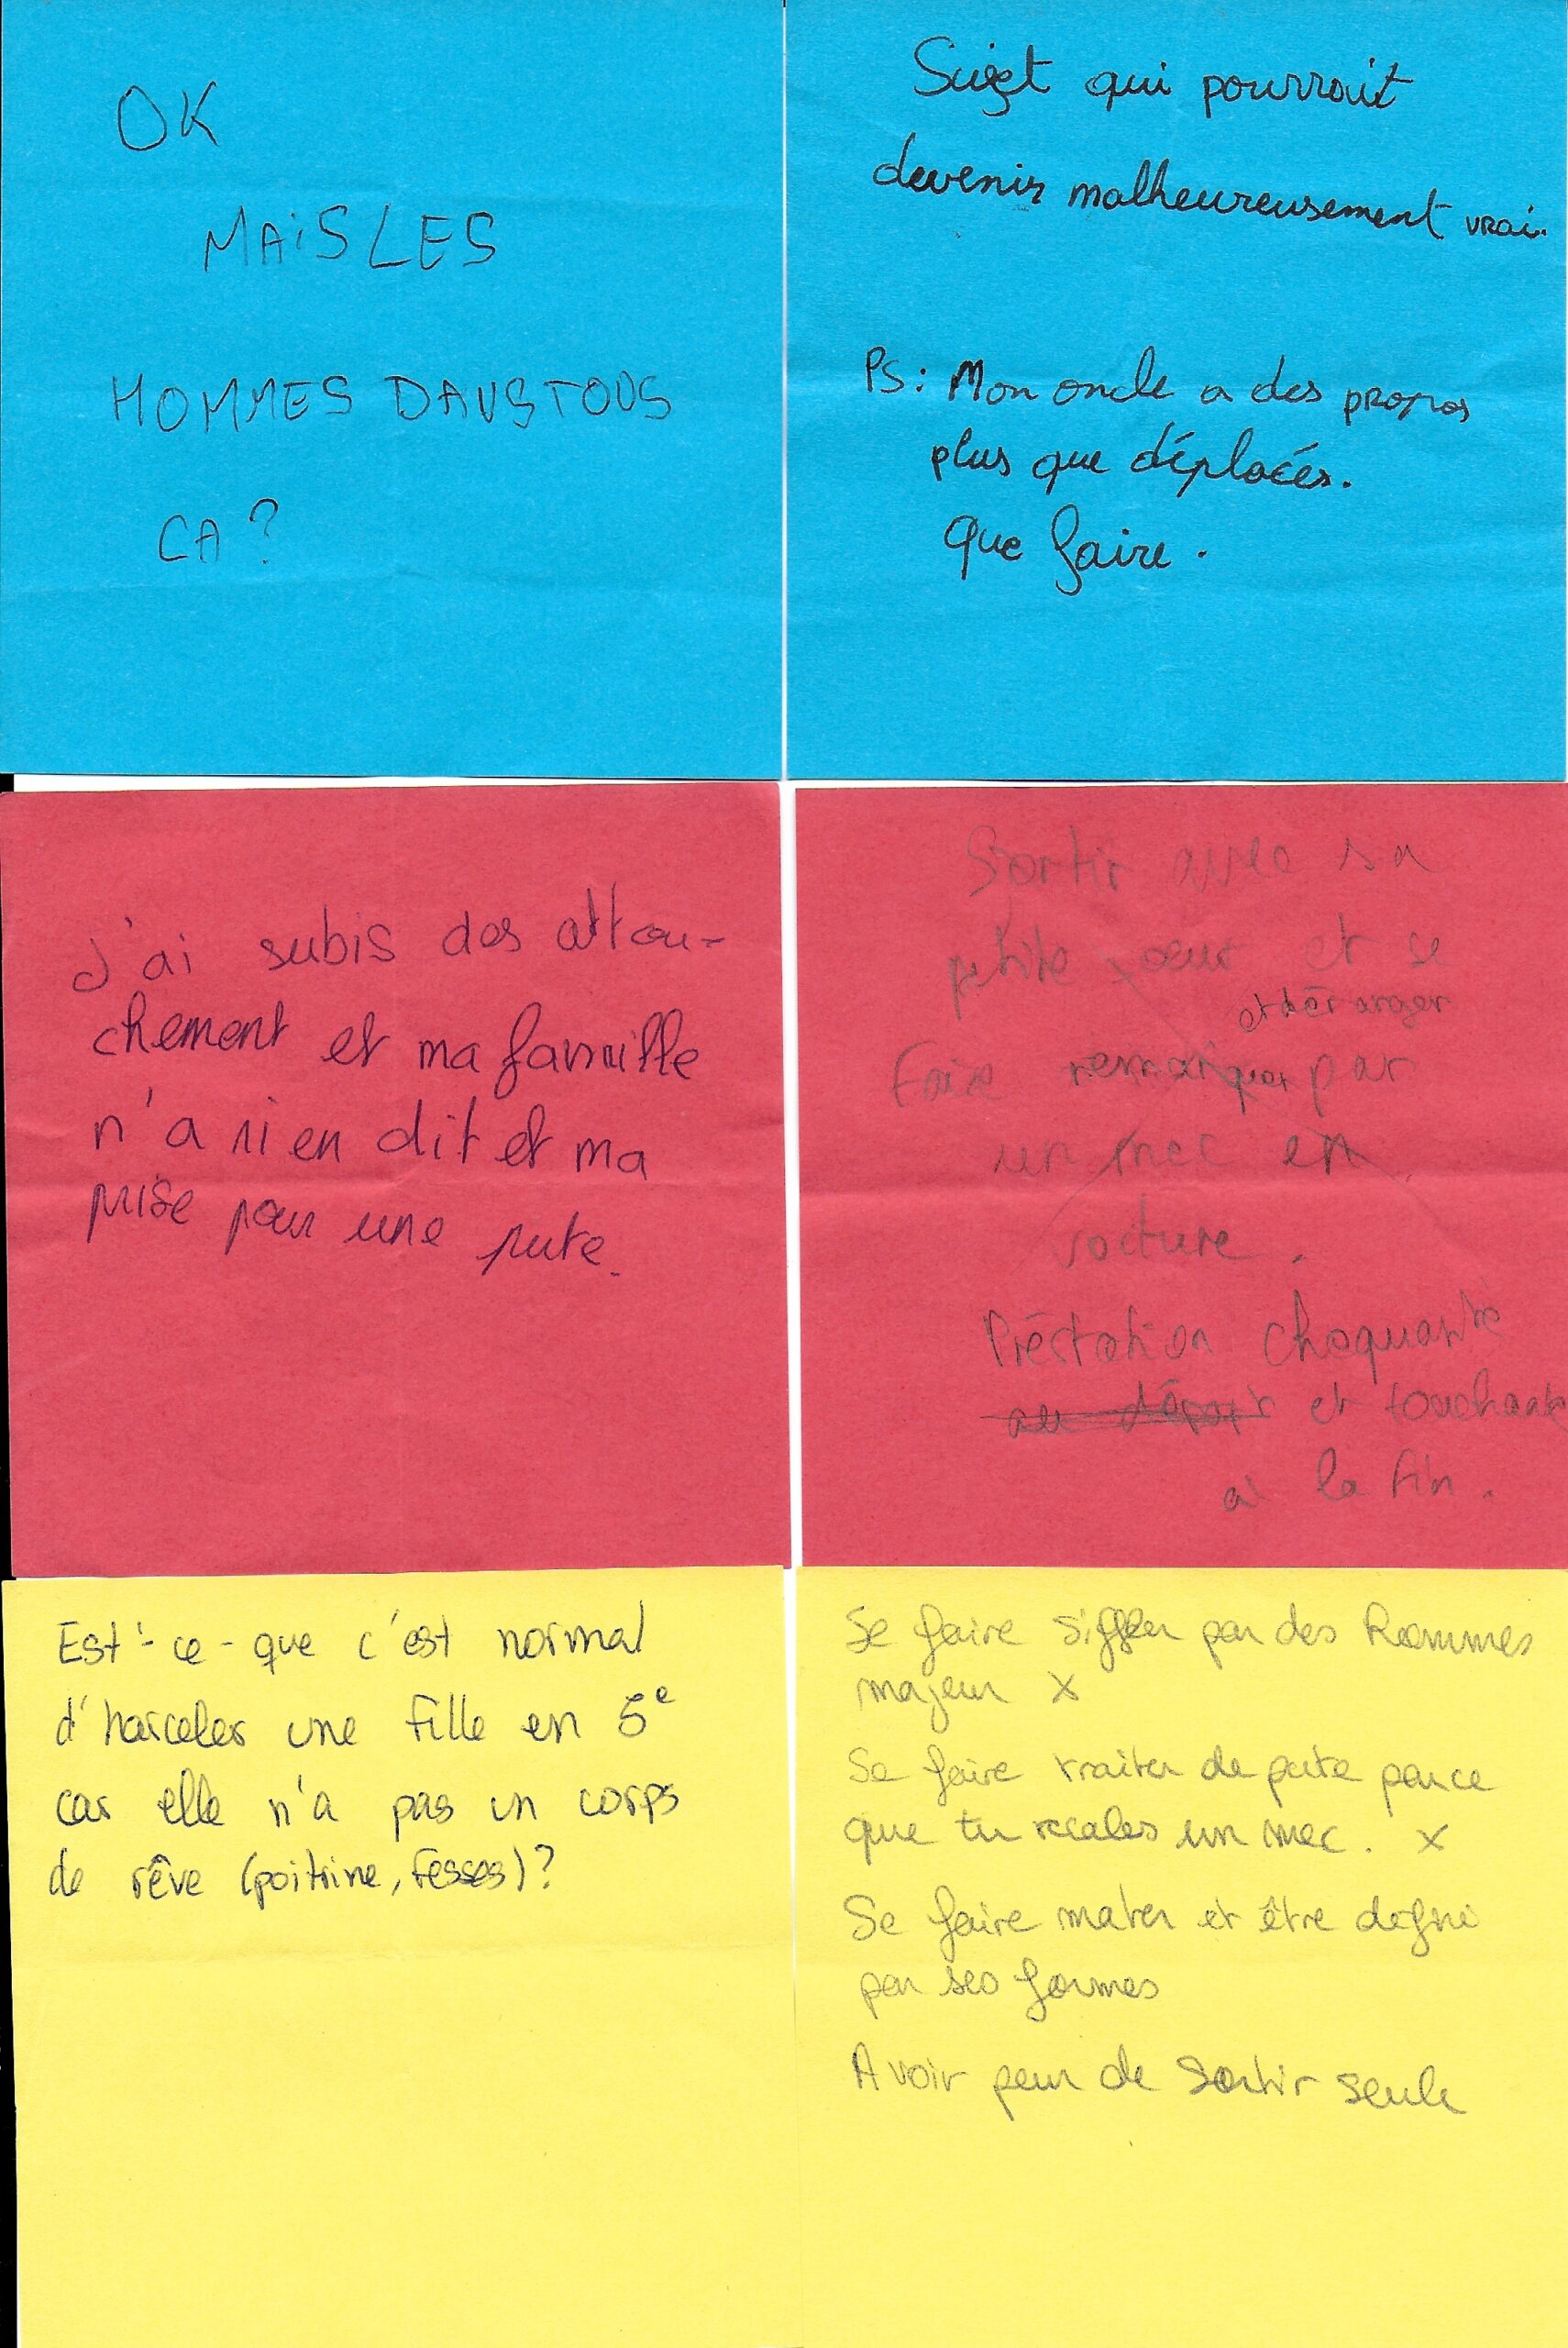 OK
MAiS LES
HOMMES DANS TOUS
CA ?
Sujet qui pourrait
devenir malheureusement vrai.
PS : Mon oncle a des propos
plus que déplacés.
Que faire .
J'ai subis des attou-
chement et ma famille
n'a rien dit et ma
prise pour une pute.
Sortir avec sa
petite soeur et se
et déranger
faire remarquer par
un mec en
voiture .
Préstation choquante
au départ et touchante
à la fin .
Est-ce-que c'est normal
d'harceler une fille en 5e
car elle n'a pas un corps
de rêve (poitrine, fesses) ?
Se faire siffler par des hommes
majeur x
Se faire traiter de pute parce
que tu recales un mec . x
Se faire mater et être défini
par ses formes
Avoir peur de sortir seule